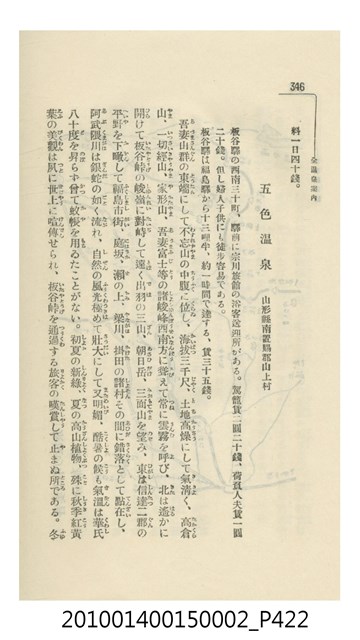 346
全國溫泉案內
料一日四十錢。
五色溫泉 山形縣南置賜郡山上村
板谷驛の西南三十町、驛前に宗川旅館の浴客送迎所がある。駕籠賃二圓二十錢、荷負人夫賃一圓
二十錢。但し婦人子供にも徒步容易である。
板谷驛は福島驛から十三哩半、約一時間で達する、賃三十五錢。
吾妻山群の東端にして不忘山の中腹に位し、海拔三千尺、土地高燥にして氣淸く、高倉
山、一切經山、家形山、吾妻富士等の諸峻峰西南方に聳えて常に雲霧を呼び、北は遙かに
開けて板谷峠の峻嶺に對峙して遠く出羽の三山、朝日岳、三面山を望み、東は信達二郡の
平野を下瞰して福島市街、庭坂、瀨の上、梁川、掛田の諸村その間に錯落として點在し、
阿武隈川は銀蛇の如く流れ、自然の風光極めて壯大にして又明媚、酷暑の候も氣溫は華氏
八十度を昇らず曾て蚊帳を用ゐたことがない。初夏の新綠、夏の高山植物、殊に秋季紅黃
葉の美觀は夙に世上に喧傳せられ、板谷峠を通過する旅客の嘆賞して止まぬ所である。冬
201001400150002_P422